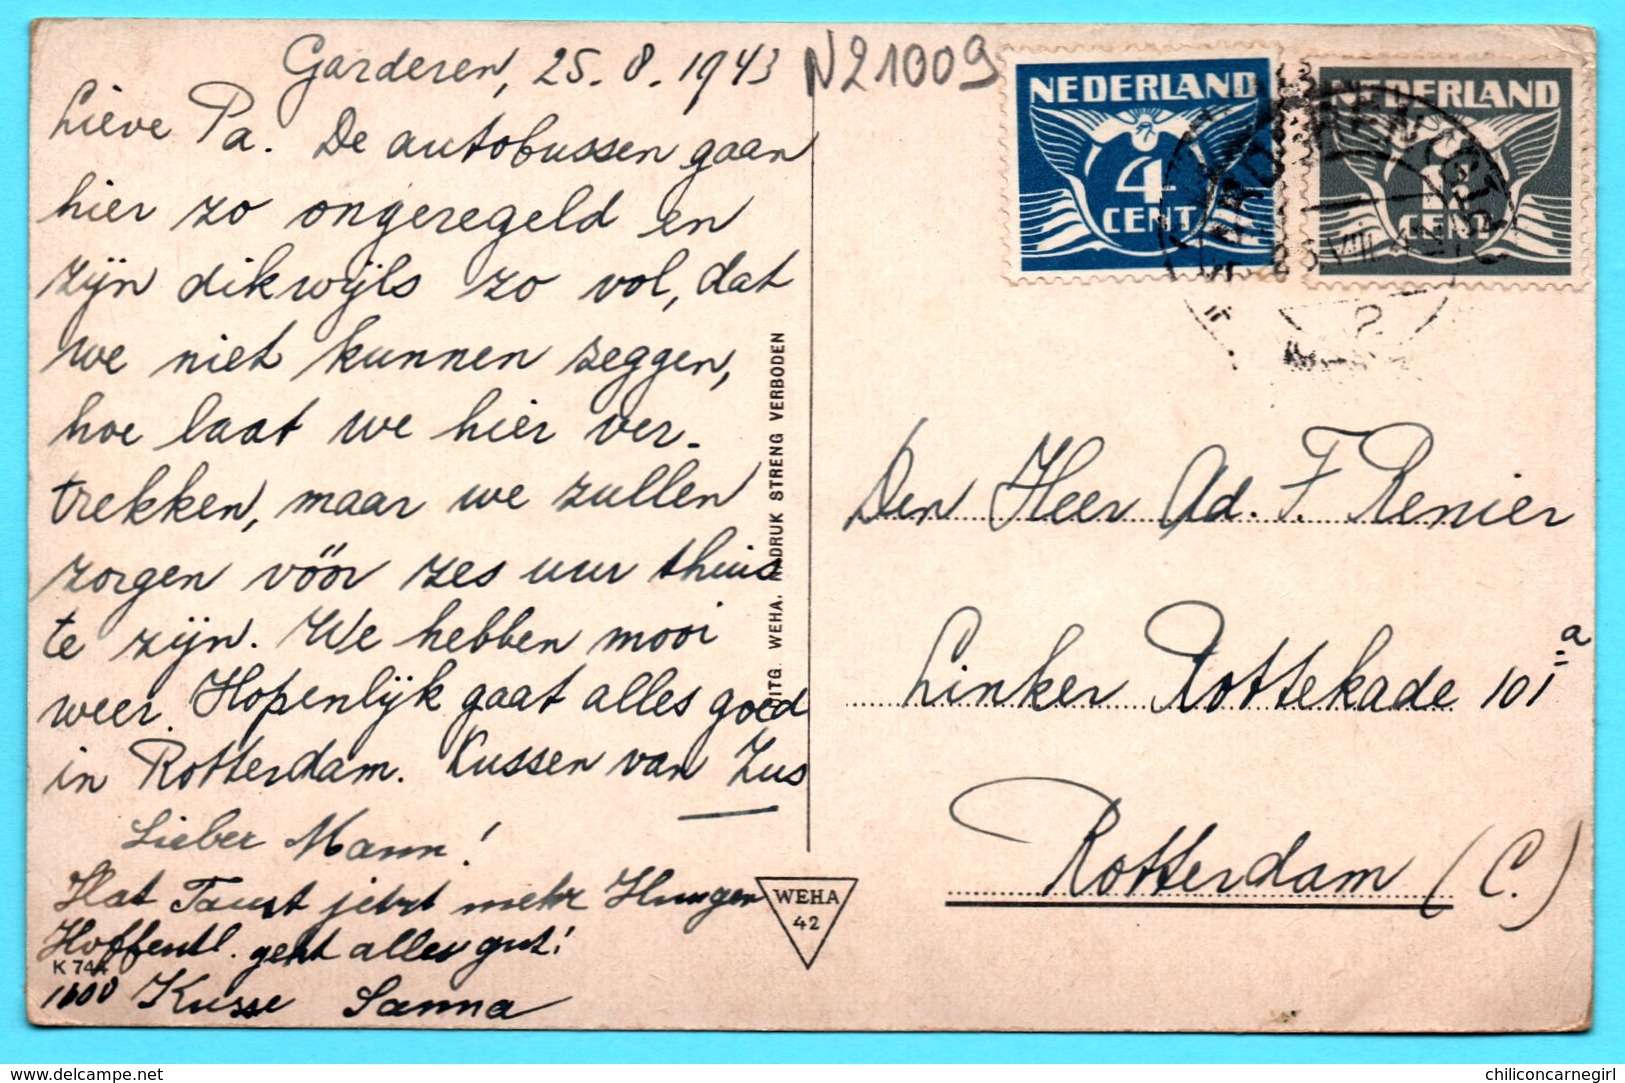 Garderen, 25.8.1943
Lieve Pa. De autobussen gaan
hier zo ongeregeld en
zijn dikwijls zo vol, dat
we niet kunnen zeggen,
hoe laat we hier ver-
trekken, maar we zullen
zorgen vóór zes uur thuis
te zijn. We hebben mooi
weer. Hopenlijk gaat alles goed
in Rotterdam. Kussen van Zus
Lieber Mann!
Hat Faust jetzt mehr Hunger
Hoffentl. geht alles gut!
1000 Küsse Sanna
K 744
UITG. WEHA. NADRUK STRENG VERBODEN
WEHA
42
N21009
NEDERLAND
4
CENT
NEDERLAND
1
CENT
Den Heer Ad. F. Renier
Linker Rottekade 101a
Rotterdam (C.)
chiliconcarnegirl sur www.delcampe.net